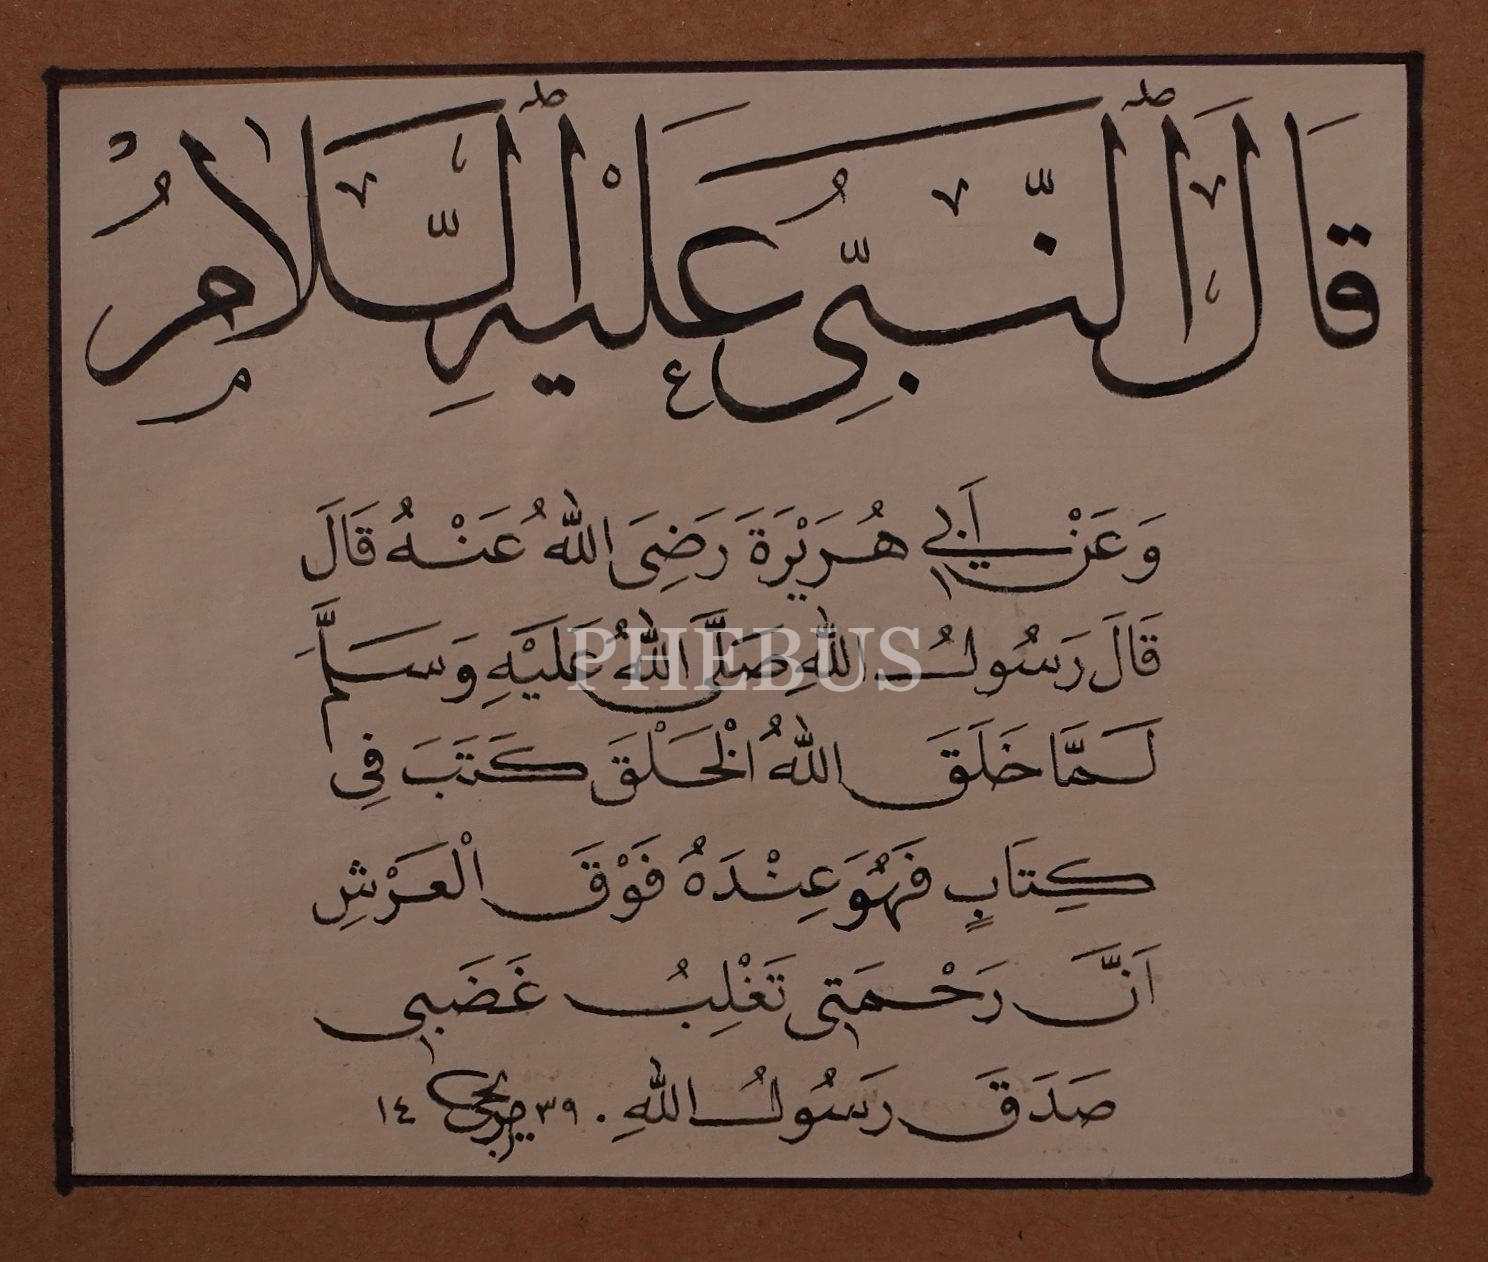 قَالَ النَّبِيُّ عَلَيْهِ السَّلَامُ
وَعَنْ أَبِي هُرَيْرَةَ رَضِيَ اللهُ عَنْهُ قَالَ
قَالَ رَسُولُ اللهِ صَلَّى اللهُ عَلَيْهِ وَسَلَّمَ
PHEBUS
لَمَّا خَلَقَ اللهُ الْخَلْقَ كَتَبَ فِي
كِتَابٍ فَهُوَ عِنْدَهُ فَوْقَ الْعَرْشِ
اَنَّ رَحْمَتِي تَغْلِبُ غَضَبِي
صَدَقَ رَسُولُ اللهِ . ٣٩ ١٤